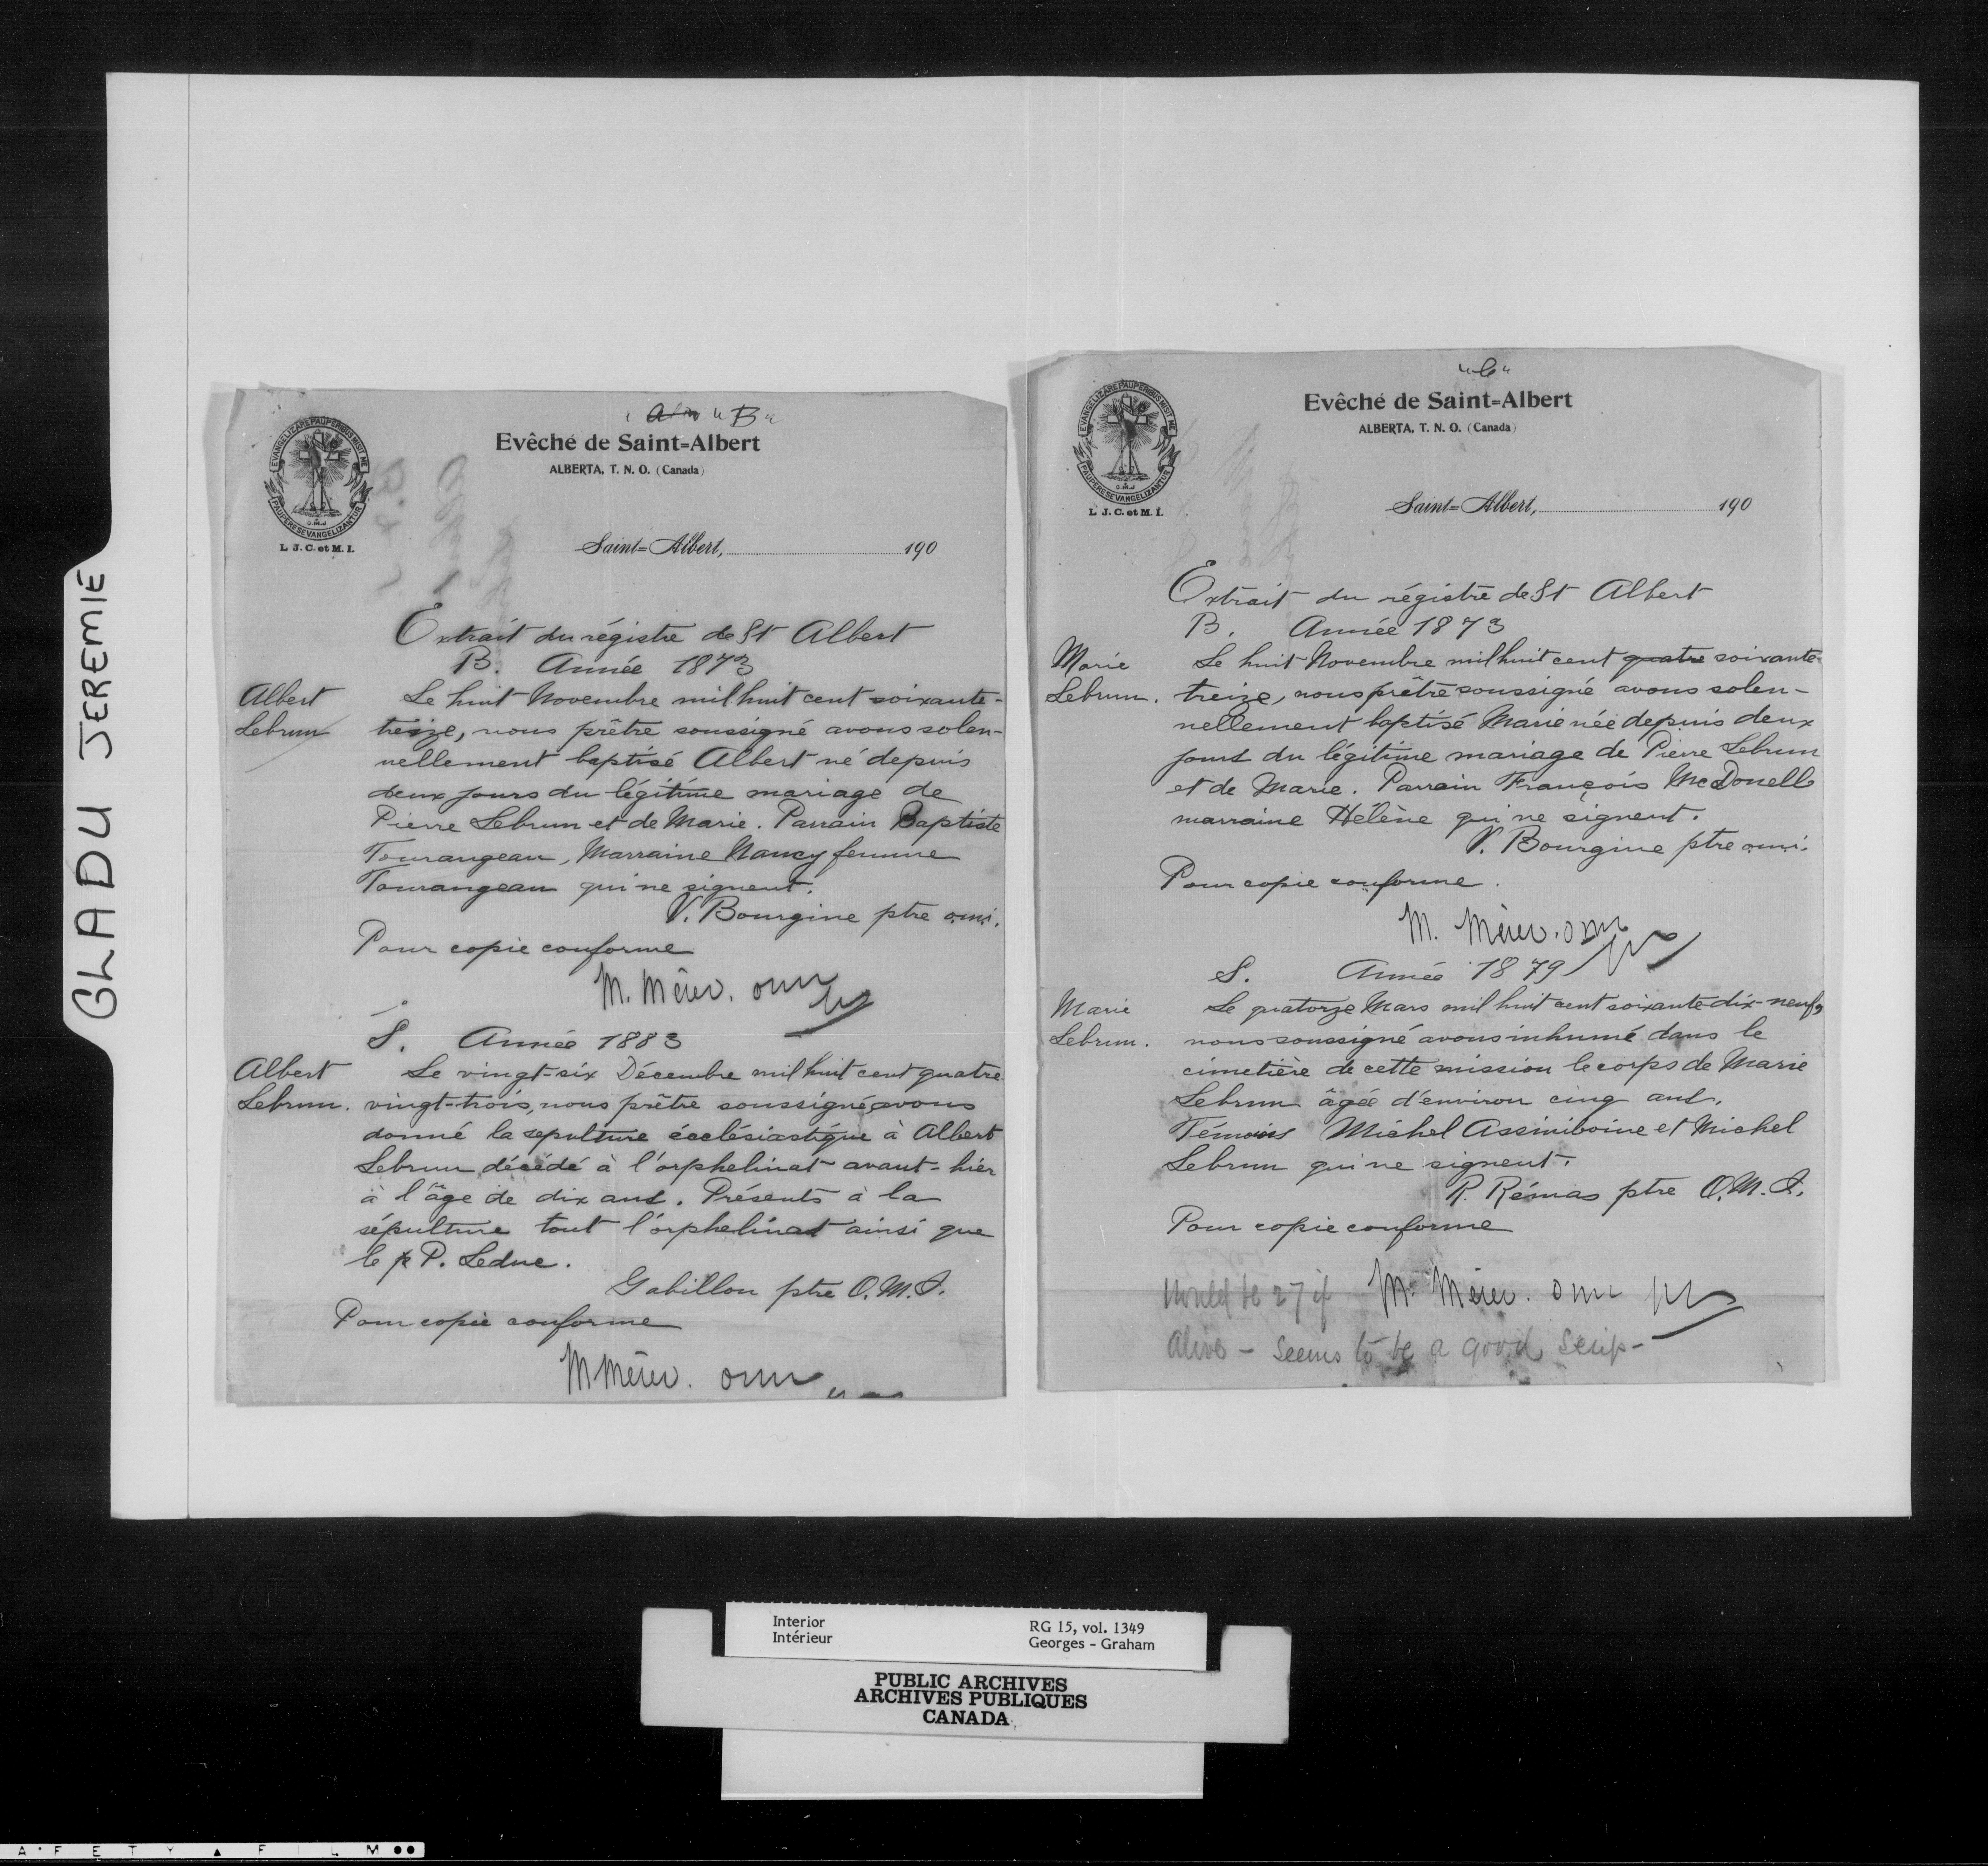 GLADU JEREMIE
"B"
Evêché de Saint-Albert
ALBERTA, T. N. O. (Canada)
EVANGELIZARE PAUPERIBUS MISIT ME
PAUPERES EVANGELIZANTUR
O.M.J
L. J. C. et M. I.
Saint-Albert, 190
Extrait du régistre de St Albert
B. Année 1873
Albert
Lebrun
Le huit Novembre mil huit cent soixante-
treize, nous prêtre soussigné avons solen-
nellement baptisé Albert né depuis
deux jours du légitime mariage de
Pierre Lebrun et de Marie. Parrain Baptiste
Tourangeau, Marraine Nancy femme
Tourangeau qui ne signent.
V. Bourgine ptre o.m.i.
Pour copie conforme
M. Mérer. omi
S. Année 1883
Albert
Lebrun.
Le vingt-six Décembre mil huit cent quatre
vingt-trois, nous prêtre soussigné, avons
donné la sepulture écclésiastique à Albert
Lebrun décédé à l'orphelinat avant-hier
à l'âge de dix ans. Présents à la
sépulture tout l'orphelinat ainsi que
le p P. Leduc.
Gabillon ptre O.M.I.
Pour copie conforme
M Mérer. omi
"C"
Evêché de Saint-Albert
ALBERTA, T. N. O. (Canada)
EVANGELIZARE PAUPERIBUS MISIT ME
PAUPERES EVANGELIZANTUR
O.M.J
L. J. C. et M. I.
Saint-Albert, 190
Extrait du régistre de St Albert
B. Année 1873
Marie
Lebrun.
Le huit Novembre mil huit cent quatre soixante-
treize, nous prêtre soussigné avons solen-
nellement baptisé Marie née depuis deux
jours du légitime mariage de Pierre Lebrun
et de Marie. Parrain François McDonell
marraine Hélène qui ne signent.
V. Bourgine ptre o.m.i.
Pour copie conforme.
M. Mérer. omi
S. Année 1879
Marie
Lebrun.
Le quatorze Mars mil huit cent soixante-dix-neuf,
nous soussigné avons inhumé dans le
cimetière de cette mission le corps de Marie
Lebrun âgée d'environ cinq ans.
Témoins Michel Assiniboine et Michel
Lebrun qui ne signent.
R. Rémas ptre O.M.I.
Pour copie conforme
M. Mérer. omi
Would be 27 if
alive - seems to be a good Scrip-
Interior
Intérieur
RG 15, vol. 1349
Georges - Graham
PUBLIC ARCHIVES
ARCHIVES PUBLIQUES
CANADA
A F E T Y ▲ F I L M ●●